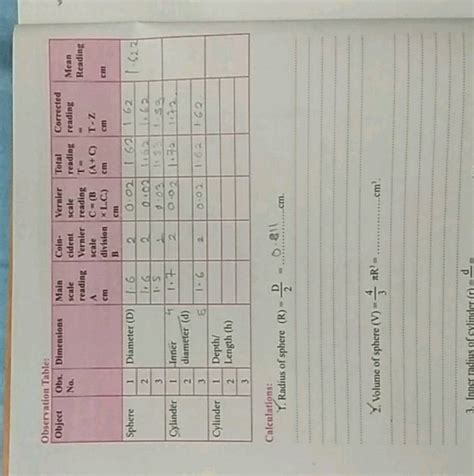 Observation Table:
Object | Obs. No. | Dimensions | Main scale reading A cm | Coin- cident Vernier scale division B | Vernier scale reading C = (B × L.C.) cm | Total reading T = (A + C) cm | Corrected reading = T - Z cm | Mean Reading cm
Sphere | 1 | Diameter (D) | 1.6 | 2 | 0.02 | 1.62 | 1.62 | 1.622
2 | 1.6 | 2 | 0.02 | 1.62 | 1.62
3 | 1.5 | 0.03
Cylinder | 1 | Inner diameter (d) | 1.7 | 2 | 0.02 | 1.72 | 1.72
2
3 | 1.6 | 2 | 0.02 | 1.62 | 1.62
Cylinder | 1 | Depth/ Length (h)
2
3
Calculations:
1. Radius of sphere (R) = D/2 = 0.811 cm.
2. Volume of sphere (V) = 4/3 πR³ = cm³.
3. Inner radius of cylinder (r) = d =